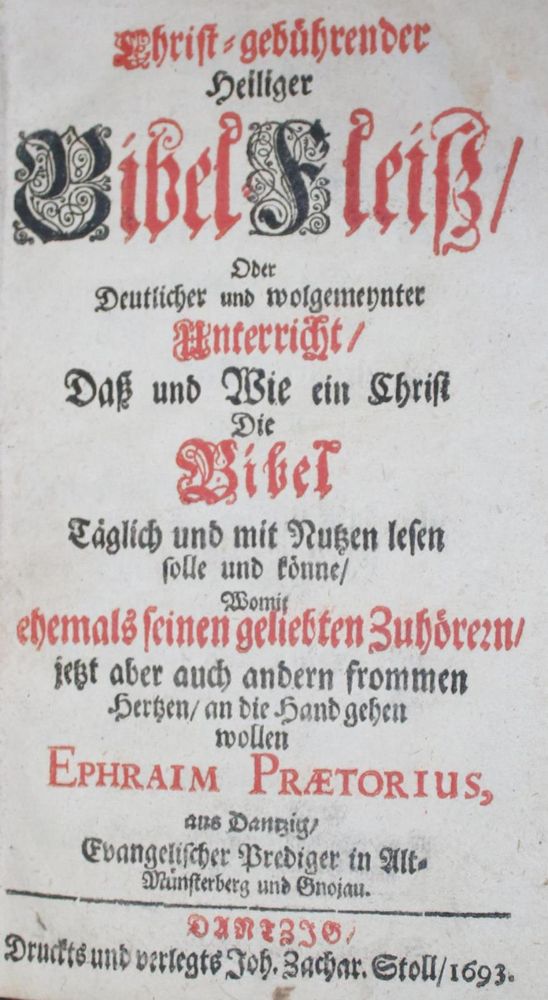 Christ-gebührender
Heiliger
Bibel-Fleiß/
Oder
Deutlicher und wolgemeynter
Unterricht/
Daß und Wie ein Christ
Die
Bibel
Täglich und mit Nutzen lesen
solle und könne/
Womit
ehemals seinen geliebten Zuhörern/
jetzt aber auch andern frommen
Hertzen/ an die Hand gehen
wollen
EPHRAIM PRÆTORIUS,
aus Dantzig/
Evangelischer Prediger in Alt-
Münsterberg und Gnojau.
DANTZIG/
Druckts und verlegts Joh. Zachar. Stoll/1693.